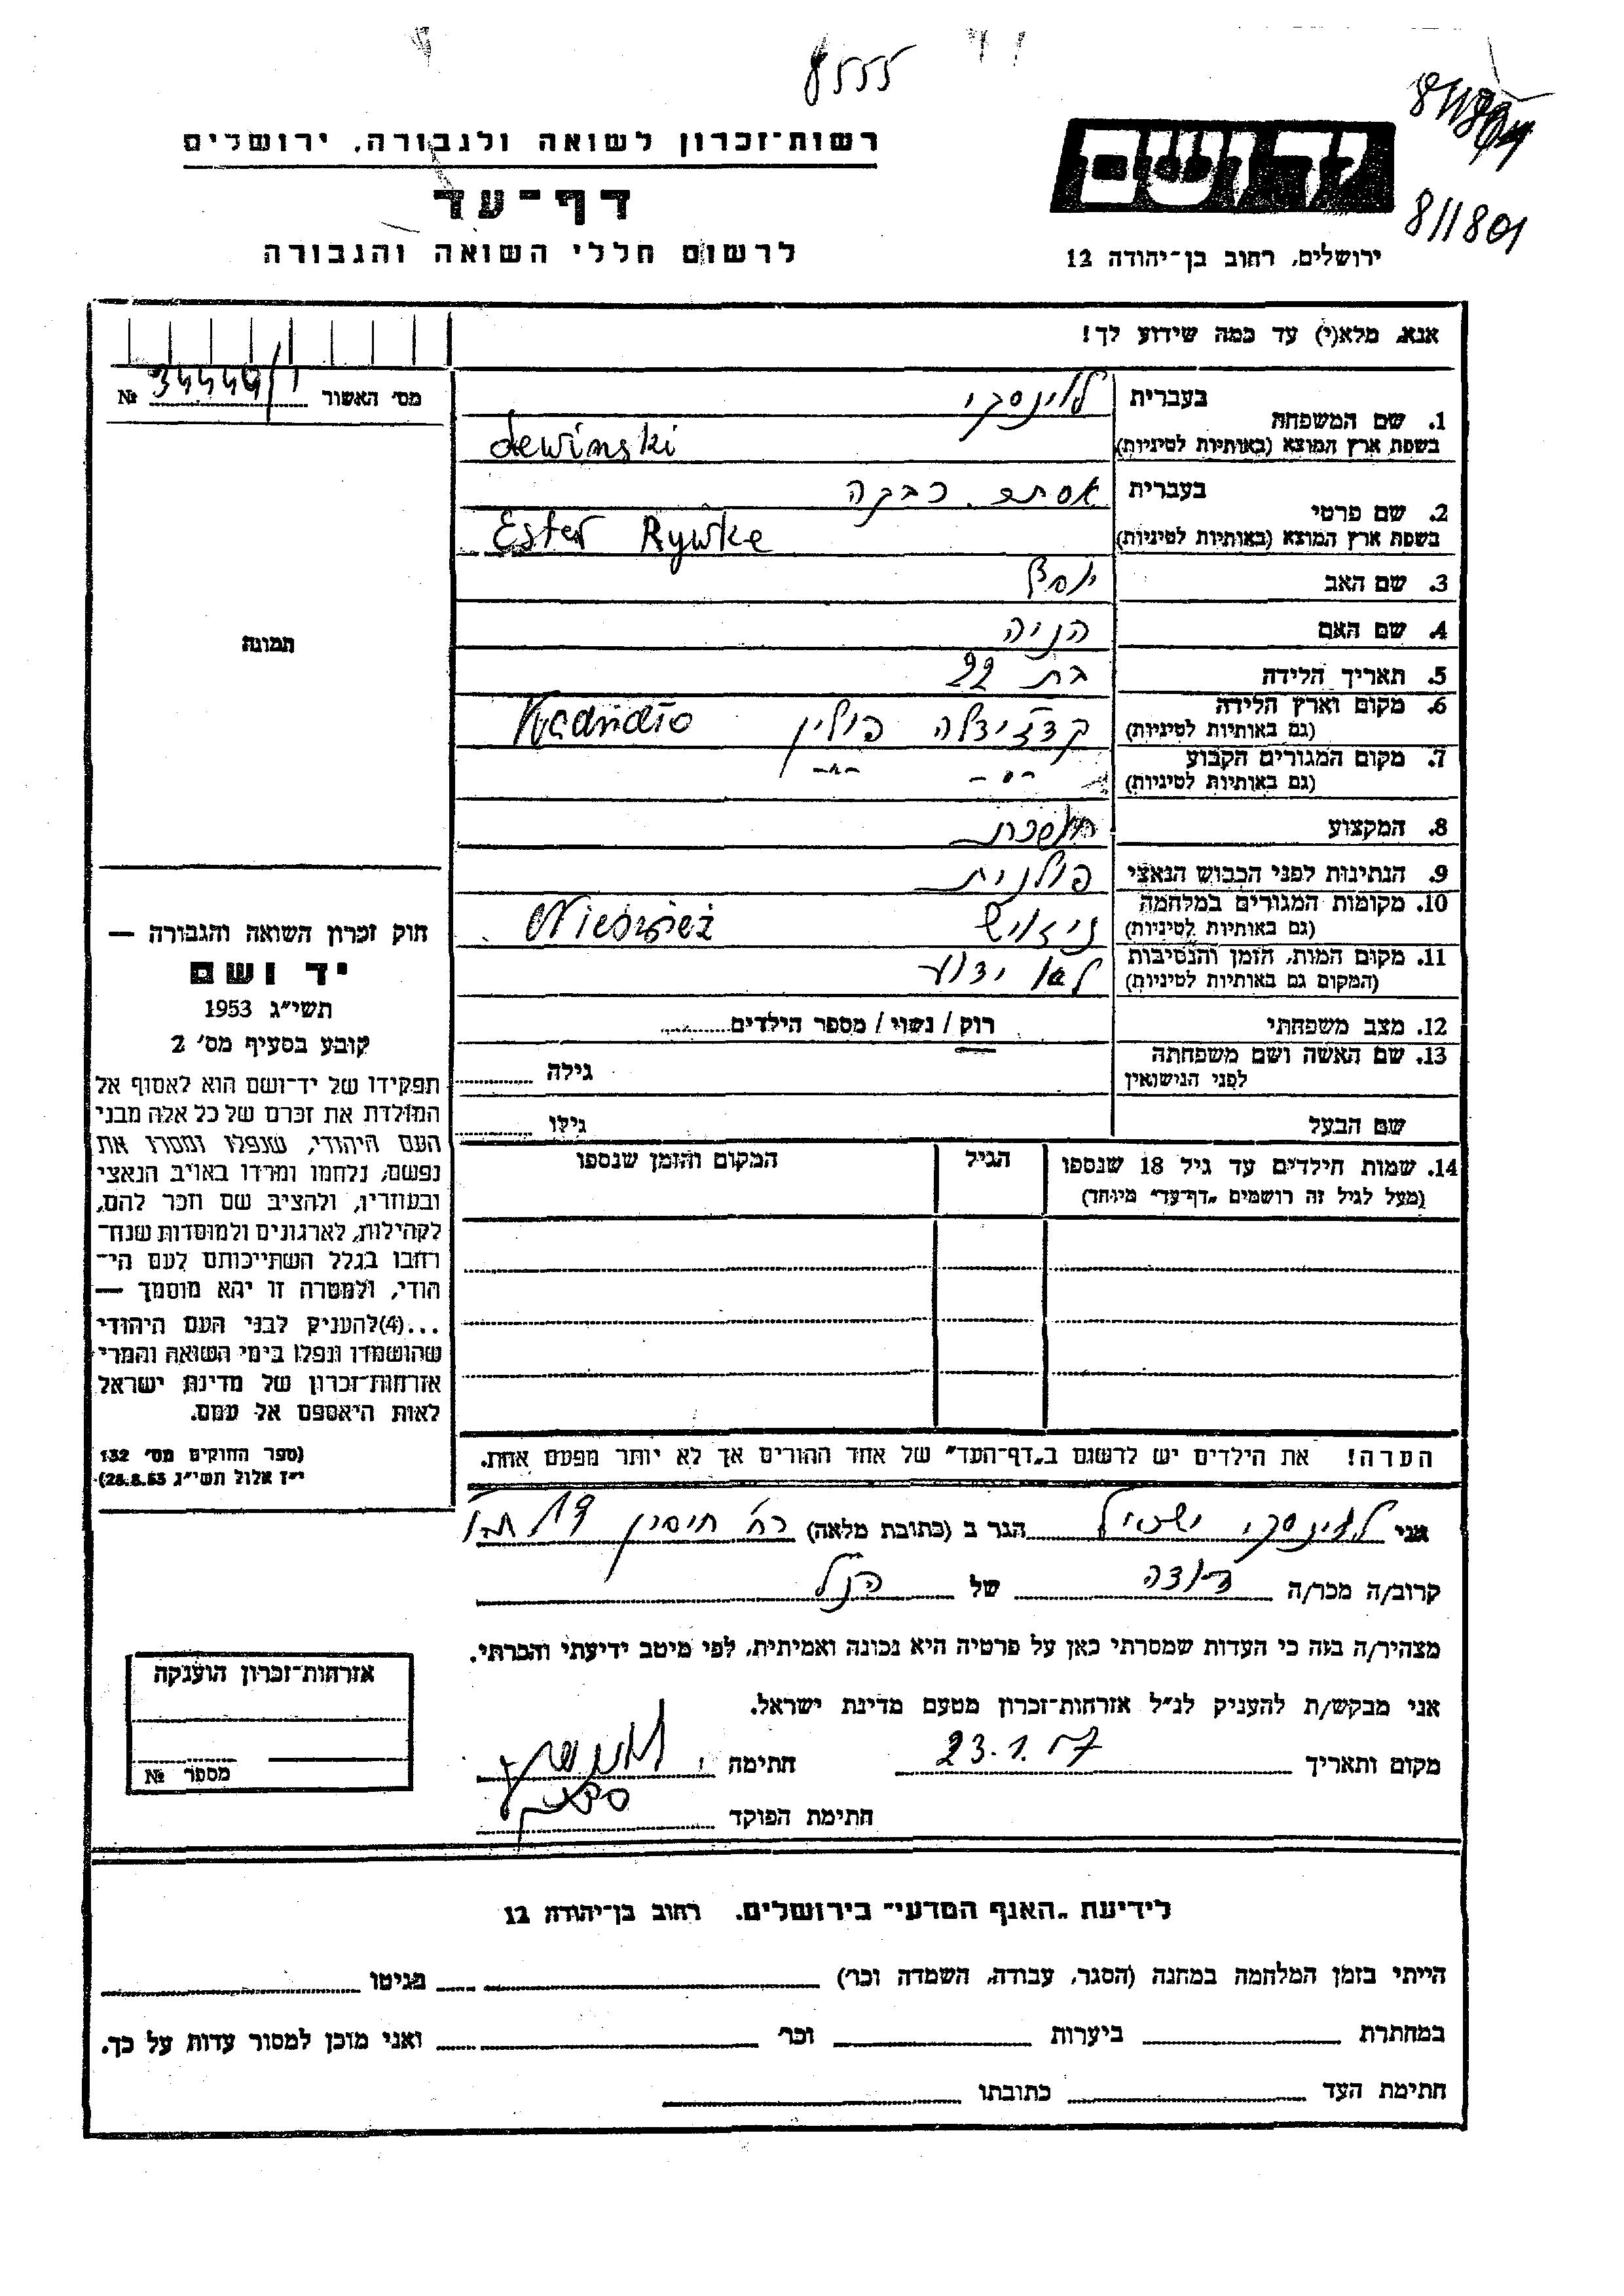 8555
811801
רשות־זכרון לשואה ולגבורה, ירושלים
דף־עד
לרשום חללי השואה והגבורה
יד ושם
ירושלים, רחוב בן־יהודה 12
אנא, מלא(י) עד כמה שידוע לך!
מס׳ האשור № 34449/1
1. שם המשפחה
בעברית
לוינסקי
בשפת ארץ המוצא (באותיות לטיניות)
Lewinski
2. שם פרטי
בעברית
אסתר רבקה
בשפת ארץ המוצא (באותיות לטיניות)
Ester Rywke
3. שם האב יוסף
4. שם האם הניה
5. תאריך הלידה בת 22
6. מקום וארץ הלידה
(גם באותיות לטיניות)
פולין
7. מקום המגורים הקבוע
(גם באותיות לטיניות)
-"- -"-
8. המקצוע
9. הנתינות לפני הכבוש הנאצי פולנית
10. מקומות המגורים במלחמה
(גם באותיות לטיניות)
11. מקום המות, הזמן והנסיבות
(המקום גם באותיות לטיניות)
לא ידוע
12. מצב משפחתי רוק / נשוי / מספר הילדים
13. שם האשה ושם משפחתה
לפני הנישואין
גילה
שם הבעל גילו
14. שמות הילדים עד גיל 18 שנספו
(מעל לגיל זה רושמים „דף־עד״ מיוחד)
הגיל
המקום והזמן שנספו
הערה! את הילדים יש לרשום ב„דף־העד״ של אחד ההורים אך לא יותר מפעם אחת.
תמונה
חוק זכרון השואה והגבורה —
יד ושם
תשי״ג 1953
קובע בסעיף מס׳ 2
תפקידו של יד־ושם הוא לאסוף אל
המולדת את זכרם של כל אלה מבני
העם היהודי, שנפלו ומסרו את
נפשם, נלחמו ומרדו באויב הנאצי
ובעוזריו, ולהציב שם וזכר להם,
לקהילות, לארגונים ולמוסדות שנח־
רחבו בגלל השתייכותם לעם הי־
הודי, ולמטרה זו יהא מוסמך —
...(4)להעניק לבני העם היהודי
שהושמדו ונפלו בימי השואה והמרי
אזרחות־זכרון של מדינת ישראל
לאות היאספם אל עמם.
(ספר החוקים מס׳ 132
י״ז אלול תשי״ג 28.8.53)
אני לוינסקי הגר ב (כתובת מלאה) רח׳
קרוב/ה מכר/ה דודה של הנ״ל
מצהיר/ה בזה כי העדות שמסרתי כאן על פרטיה היא נכונה ואמיתית, לפי מיטב ידיעתי והכרתי.
אני מבקש/ת להעניק לנ״ל אזרחות־זכרון מטעם מדינת ישראל.
מקום ותאריך 23.1.57 חתימה
חתימת הפוקד
אזרחות־זכרון הוענקה
מספר №
לידיעת „האגף המדעי״ בירושלים. רחוב בן־יהודה 12
הייתי בזמן המלחמה במחנה (הסגר, עבודה, השמדה וכו׳) בגיטו
במחתרת ביערות וכו׳ ואני מוכן למסור עדות על כך.
חתימת העד כתובתו